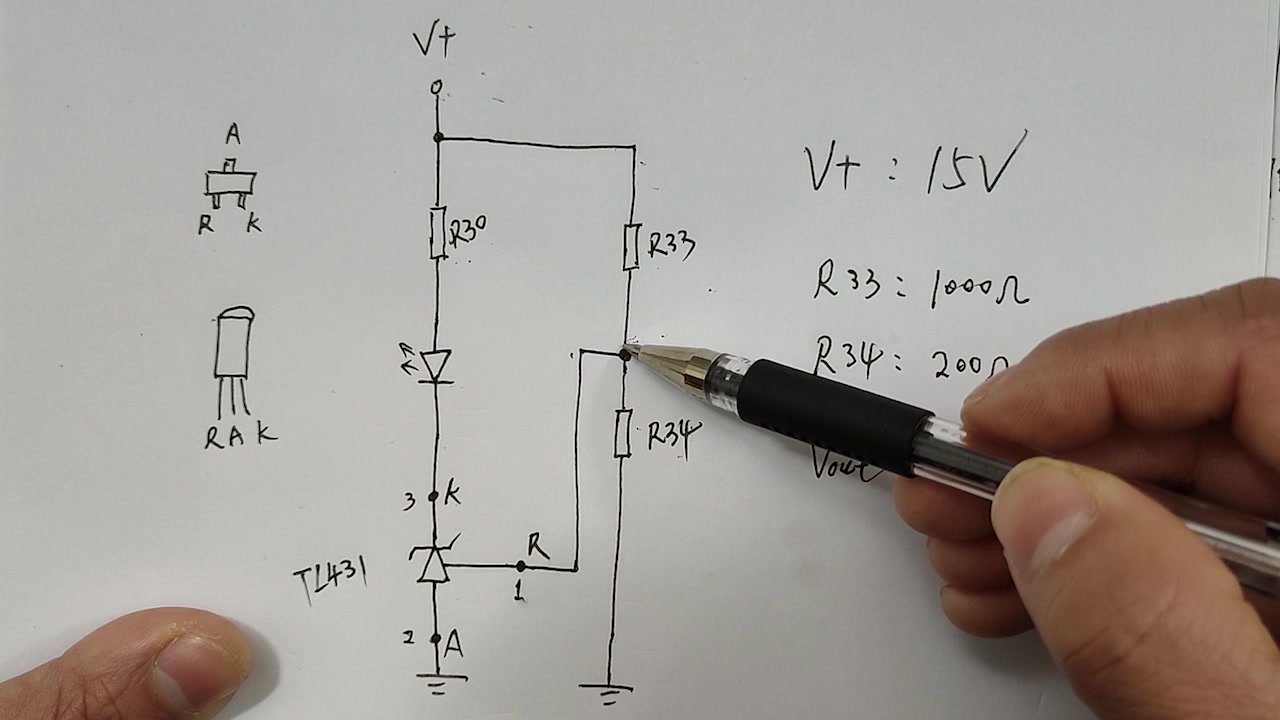 V+
A
R K
R30
R33
R34
R A K
3 K
TL431
R
1
2 A
V+ : 15V
R33 : 1000Ω
R34 : 200Ω
Vout